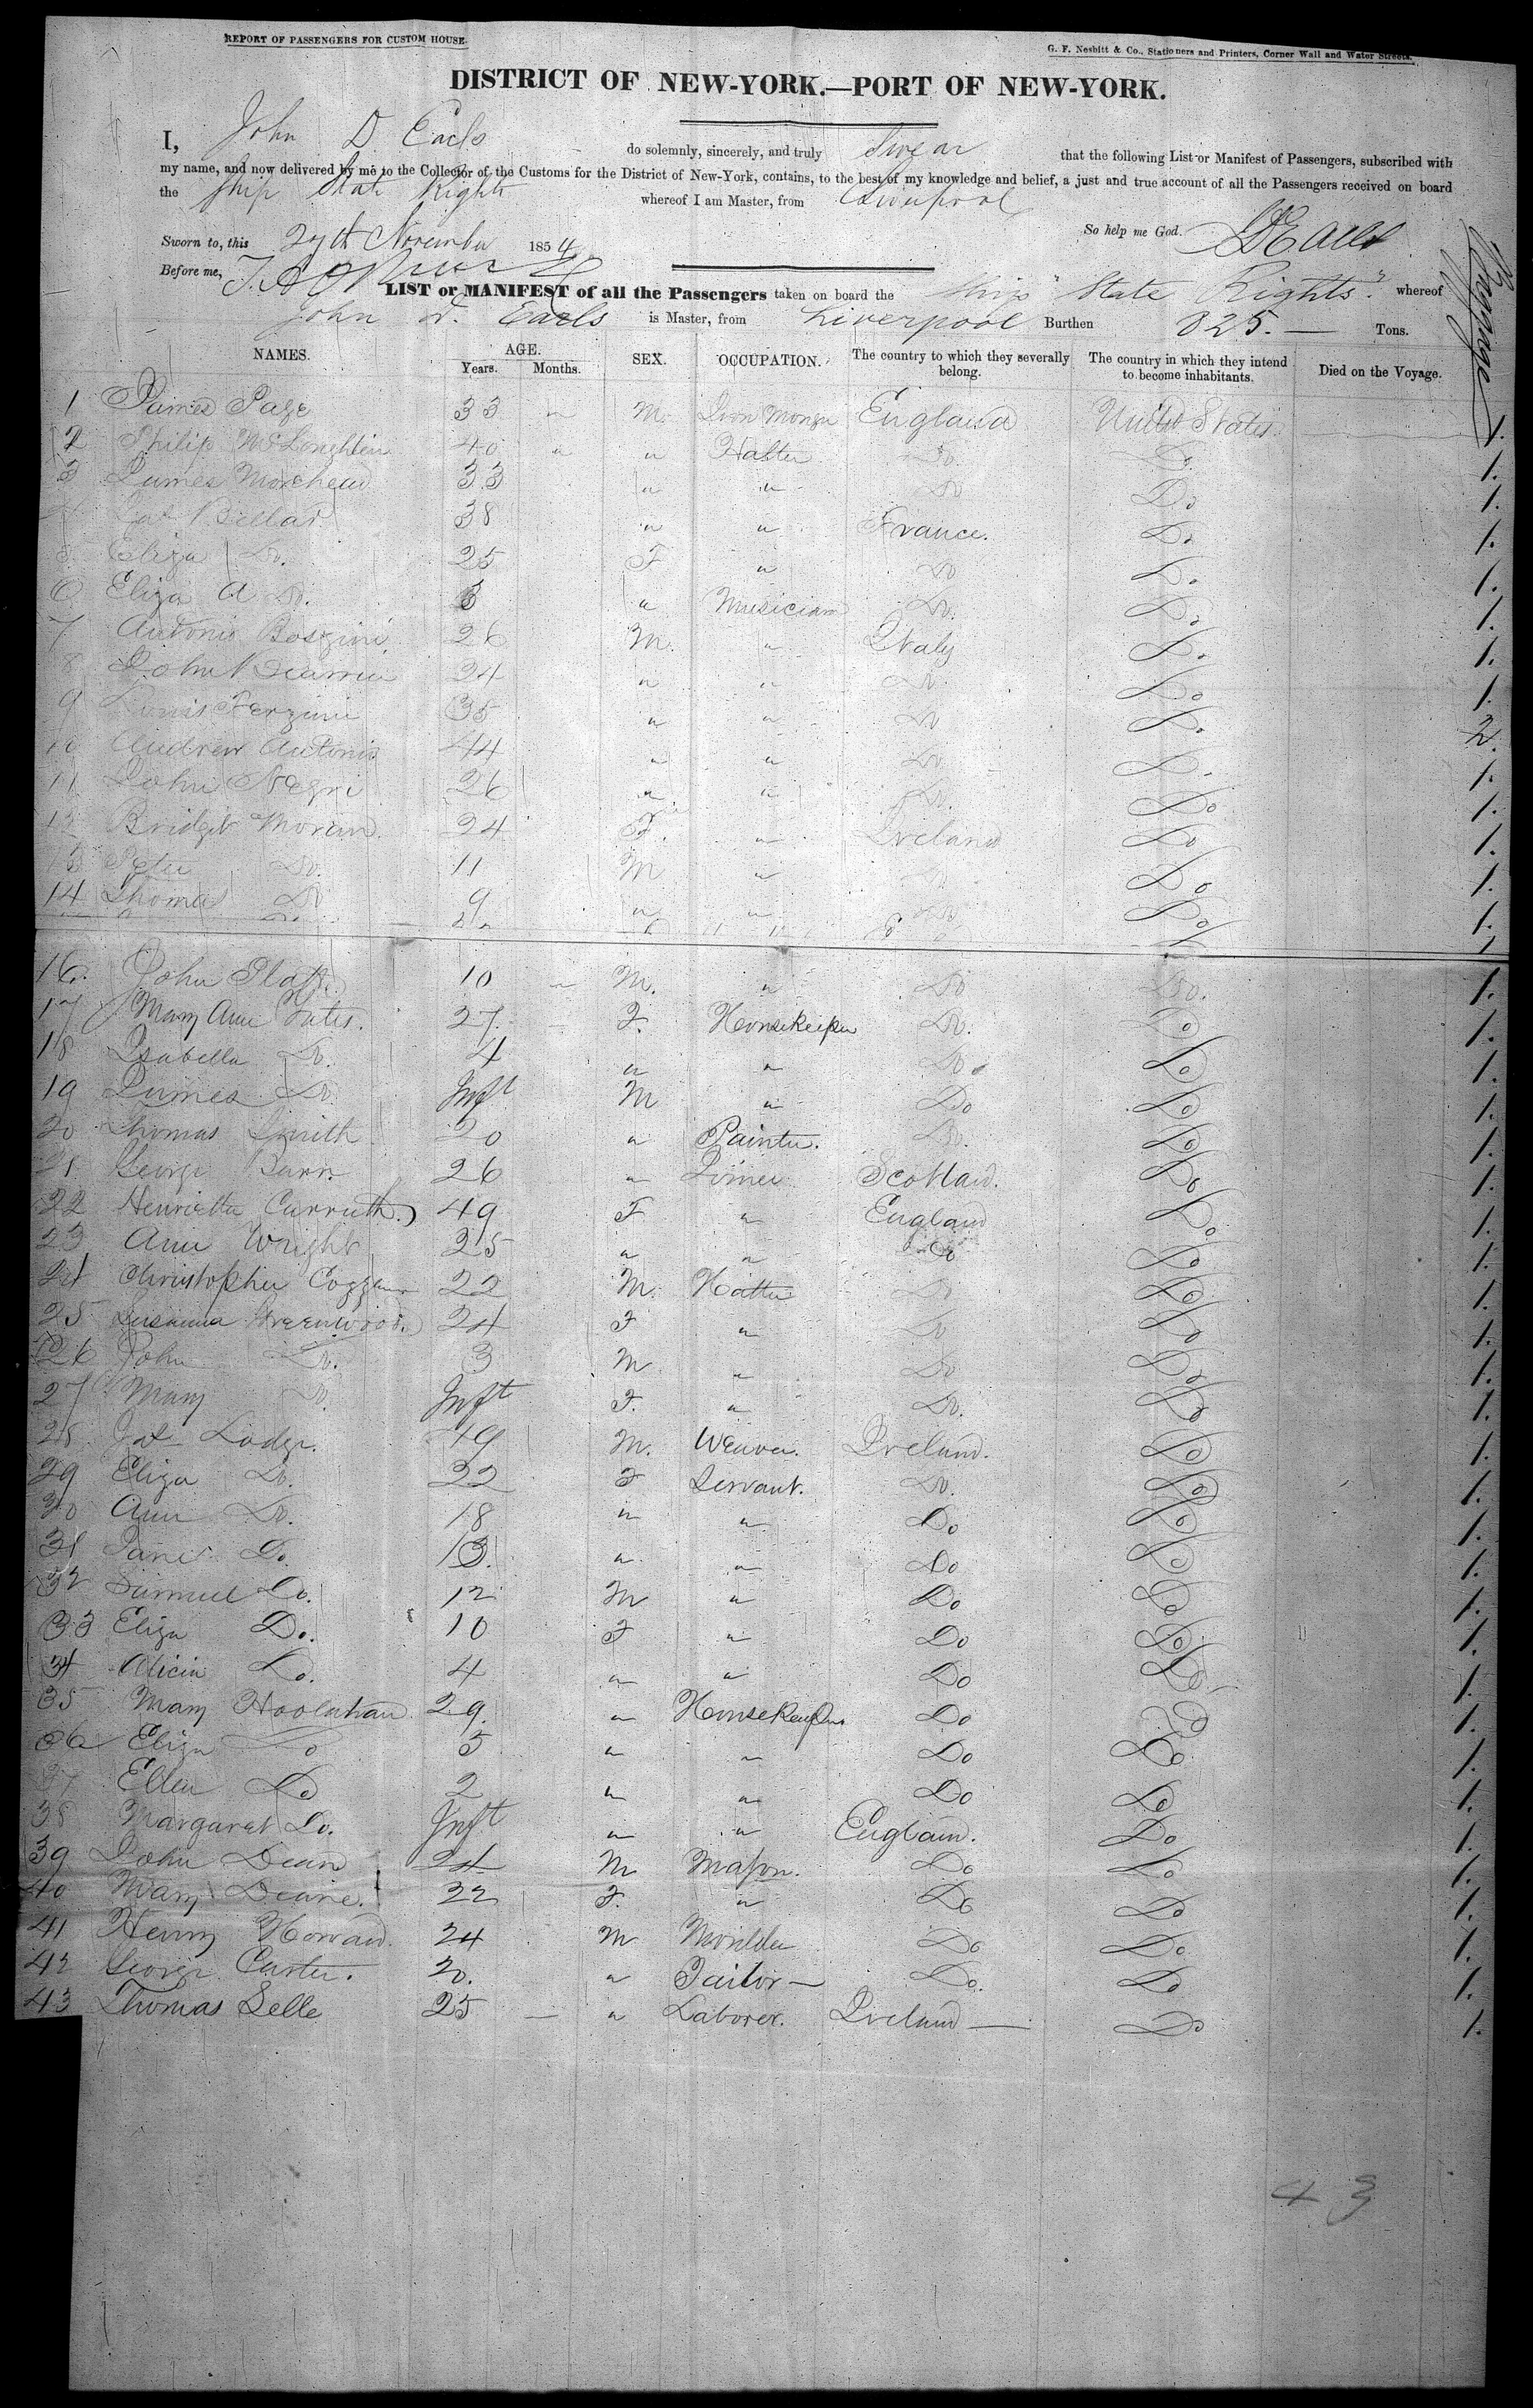 REPORT OF PASSENGERS FOR CUSTOM HOUSE.
G. F. Nesbitt & Co., Stationers and Printers, Corner Wall and Water Streets.
DISTRICT OF NEW-YORK.—PORT OF NEW-YORK.
I, John D Earls do solemnly, sincerely, and truly Swear that the following List or Manifest of Passengers, subscribed with
my name, and now delivered by me to the Collector of the Customs for the District of New-York, contains, to the best of my knowledge and belief, a just and true account of all the Passengers received on board
the Ship State Rights whereof I am Master, from Liverpool
Sworn to, this 27th November 1854 So help me God. JD Earls
Before me,
LIST or MANIFEST of all the Passengers taken on board the Ship "State Rights" whereof
John D. Earls is Master, from Liverpool Burthen 825. — Tons.
NAMES. AGE. Years. Months. SEX. OCCUPATION. The country to which they severally belong. The country in which they intend to become inhabitants. Died on the Voyage. Luggage
1 James Page 33 " M. Iron Monger England United States 1.
2 Philip McLoughlin 40 " " Hatter Do. Do. 1.
3 James Morehead 33 " " Do Do 1.
4 Pat Bellar 38 " " France. Do 1.
5 Eliza Do. 25 F " Do Do 1.
6 Eliza A Do. 3 " Musician Do. Do 1.
7 Antonio Bozzini 26 M. " Italy Do 1.
8 John 24 " " Do. Do 1.
9 Louis Ferzini 35 " " Do Do 2.
10 Andrew Antonio 44 " " Do Do 1.
11 John Negri 26 " " Do. Do 1.
12 Bridget Moran 24 F. " Ireland Do 1.
13 Peter Do. 11 M " Do 1.
14 Thomas Do 9 " " Do. Do 1.
16. John Platt 10 " M. " Do Do. 1.
17 Mary Ann Yates. 27. F. Housekeeper Do. Do 1.
18 Isabella Do. 4 " " Do Do 1.
19 James Do Inft M " Do Do 1.
20 Thomas Smith 20 " Painter. Do. Do 1.
21 George Barr 26 " Joiner Scotland. Do 1.
22 Henrietta Carruth 49 F " England Do 1.
23 Ann Wright 25 " " Do Do 1.
24 Christopher 22 M. Hatter Do Do 1.
25 Greenwood. 24 F " Do Do 1.
26 John Do. 3 M " Do Do 1.
27 Mary Do. Inft F. " Do. Do 1.
28 Pat Lodge. 49 M. Weaver. Ireland. Do 1.
29 Eliza Do. 22 F Servant. Do. Do 1.
30 Ann Do. 18 " " Do Do 1.
31 Jane Do 13. " " Do Do 1.
32 Samuel Do. 12 M " Do Do 1.
33 Eliza Do. 10 F " Do Do 1.
34 Alicia Do. 4 " " Do Do 1.
35 Mary Hoolahan 29. " Housekeeper Do Do 1.
36 Eliza Do 5 " " Do Do 1.
37 Ellen Do 2 " " Do Do 1.
38 Margaret Do. Inft " " England. Do 1.
39 John Dean 24 M Mason. Do Do 1.
40 Mary Deane. 22 F. " Do Do 1.
41 Henry Howard. 24 M Moulder Do Do 1.
42 George Carter. 20. " Tailor — Do. Do 1.
43 Thomas Selle 25 — " Laborer. Ireland — Do 1.
43